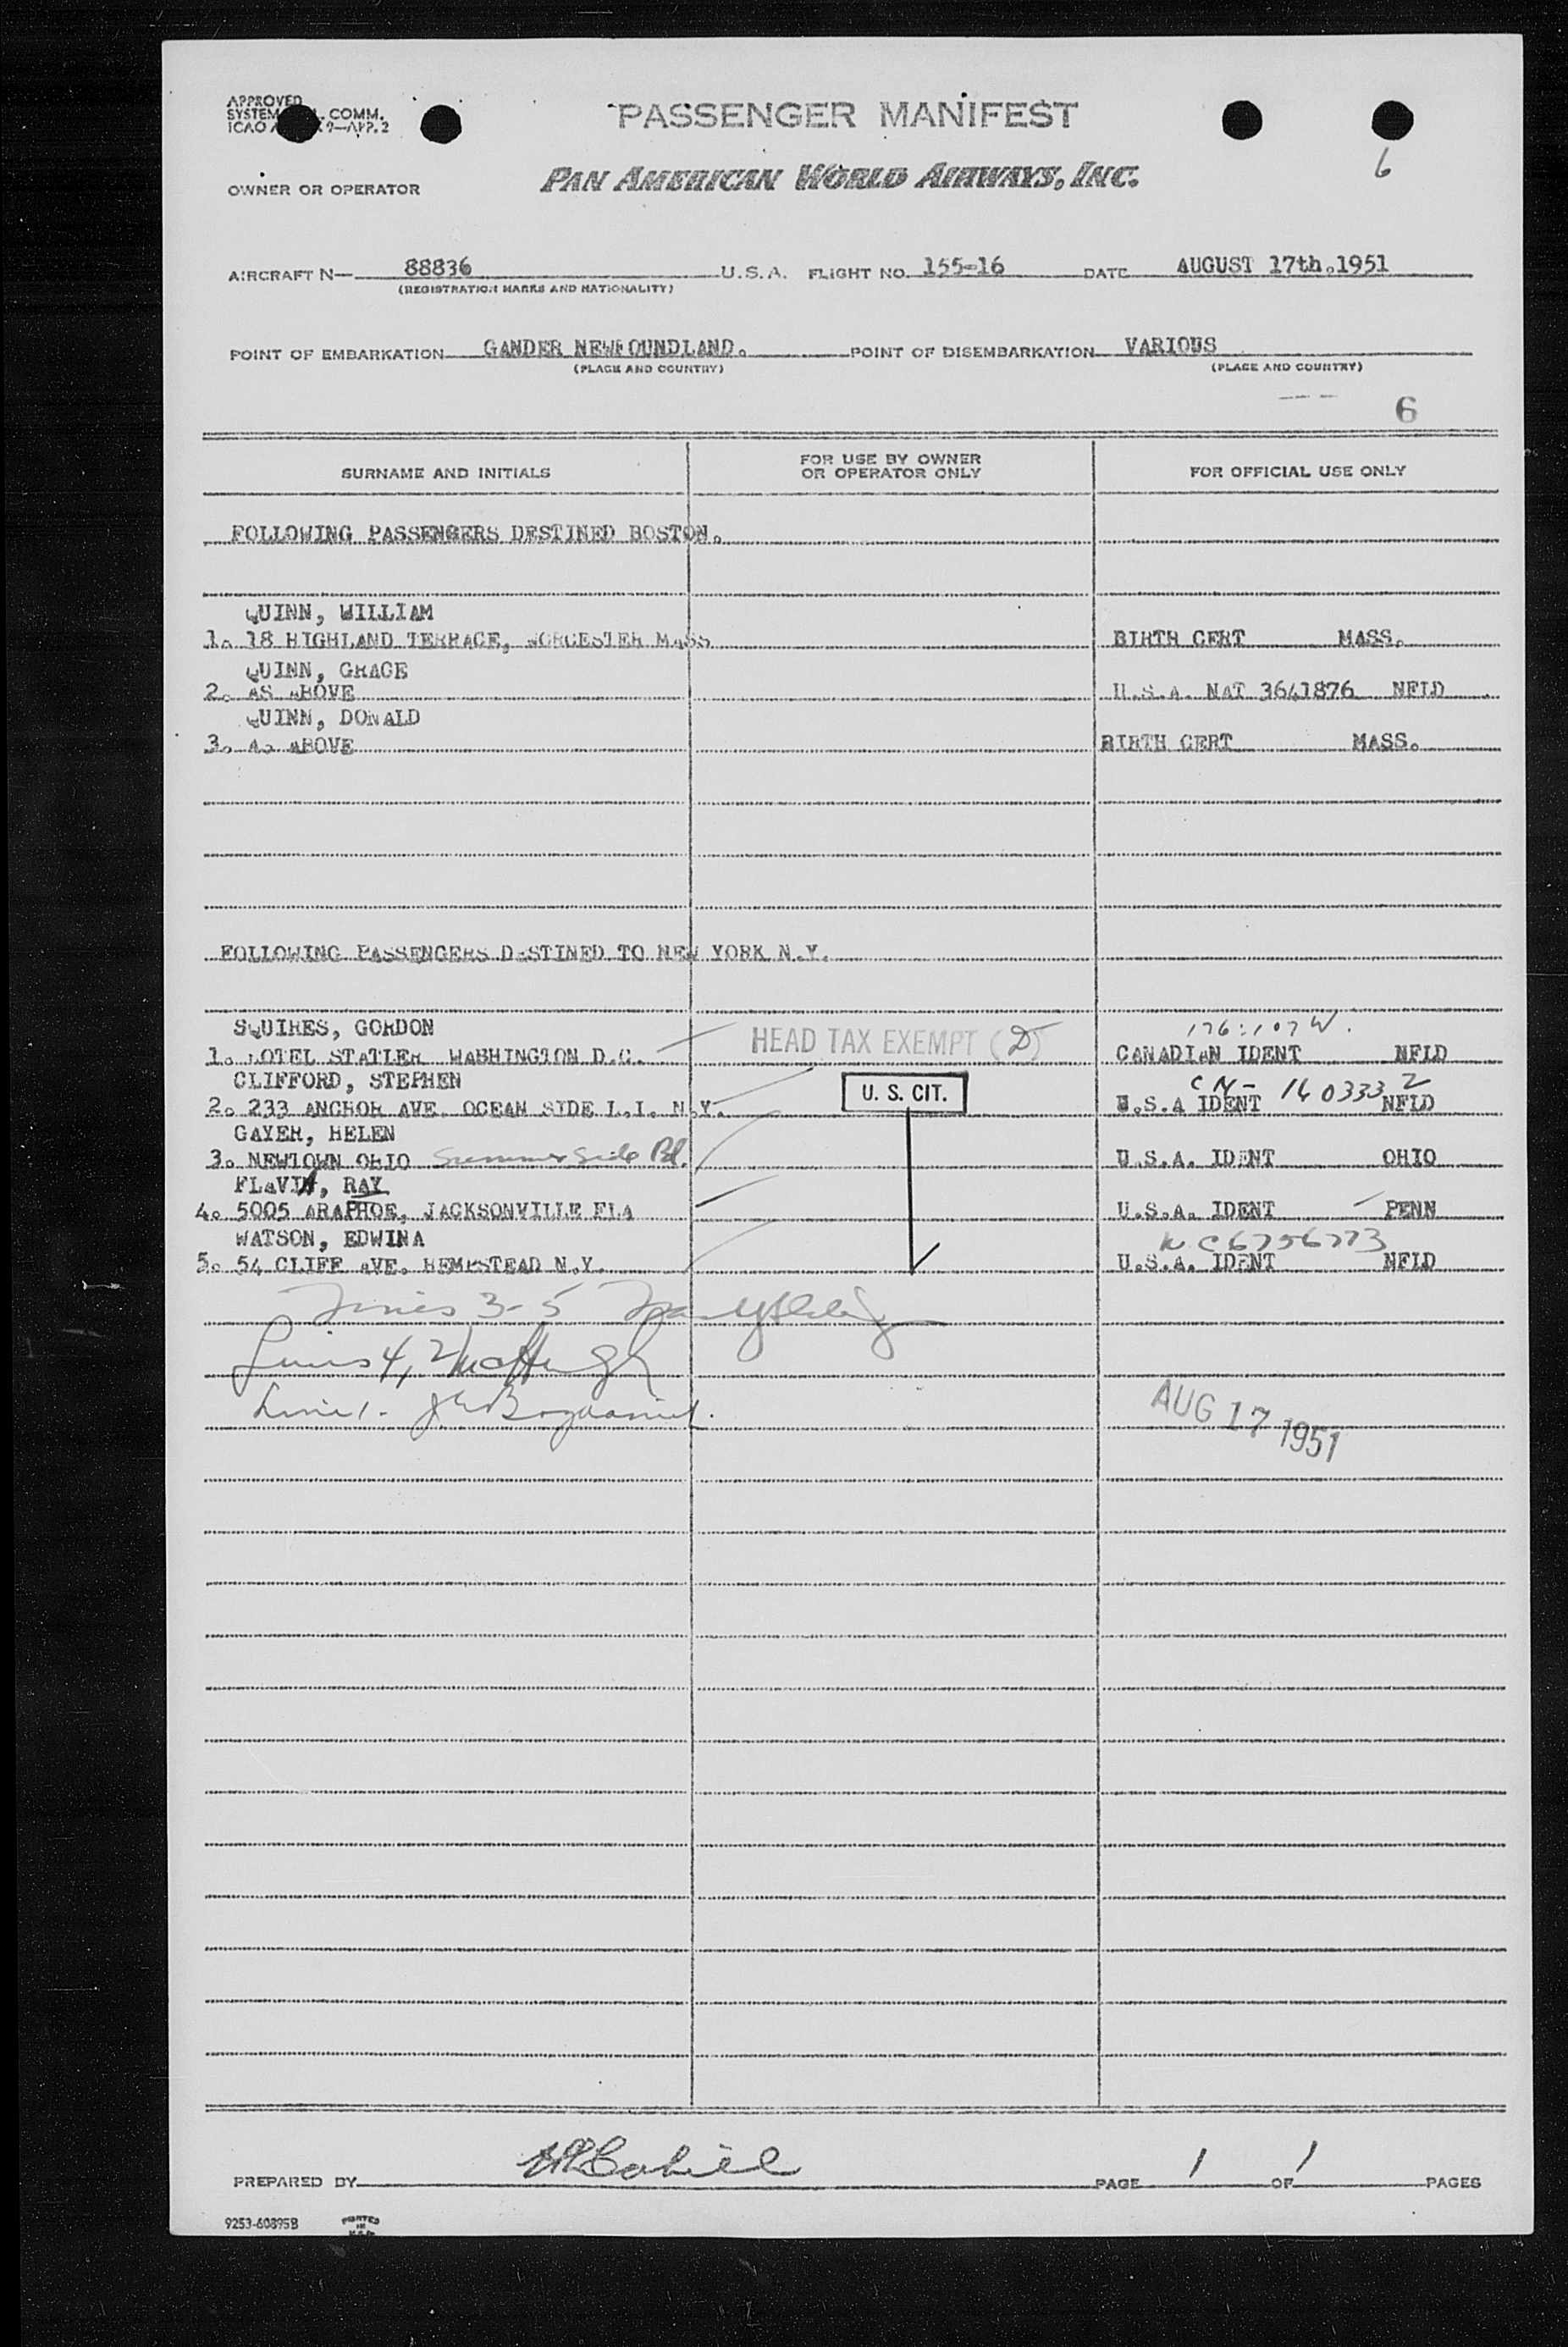 APPROVED
SYSTEM COMM.
ICAO 9—APP. 2
PASSENGER MANIFEST
6
OWNER OR OPERATOR PAN AMERICAN WORLD AIRWAYS, INC.
AIRCRAFT N— 88836 U.S.A. FLIGHT NO. 155-16 DATE AUGUST 17th.1951
(REGISTRATION MARKS AND NATIONALITY)
POINT OF EMBARKATION GANDER NEWFOUNDLAND. POINT OF DISEMBARKATION VARIOUS
(PLACE AND COUNTRY) (PLACE AND COUNTRY)
6
SURNAME AND INITIALS FOR USE BY OWNER OR OPERATOR ONLY FOR OFFICIAL USE ONLY
FOLLOWING PASSENGERS DESTINED BOSTON.
QUINN, WILLIAM
1. 18 HIGHLAND TERRACE, WORCESTER MASS BIRTH CERT MASS.
QUINN, GRACE
2. AS ABOVE U.S.A. NAT 3641876 NFLD
QUINN, DONALD
3. AS ABOVE BIRTH CERT MASS.
FOLLOWING PASSENGERS DESTINED TO NEW YORK N.Y.
SQUIRES, GORDON HEAD TAX EXEMPT (D) 176:107W.
1. HOTEL STATLER WASHINGTON D.C. CANADIAN IDENT NFLD
CLIFFORD, STEPHEN U. S. CIT. CN- 1603332
2. 233 ANCHOR AVE. OCEAN SIDE L.I. N.Y. U.S.A IDENT NFLD
GAYER, HELEN
3. NEWTOWN OHIO Summerside Rd. U.S.A. IDENT OHIO
FLAVIN, RAY
4. 5005 ARAPHOE, JACKSONVILLE FLA U.S.A. IDENT PENN
WATSON, EDWINA NC6756773
5. 54 CLIFF AVE. HEMPSTEAD N.Y. U.S.A. IDENT NFLD
Lines 3-5
Lines 4, 2
Line 1.
AUG 17 1951
PREPARED BY PAGE 1 OF 1 PAGES
9253-60895B PRINTED IN U.S.A.